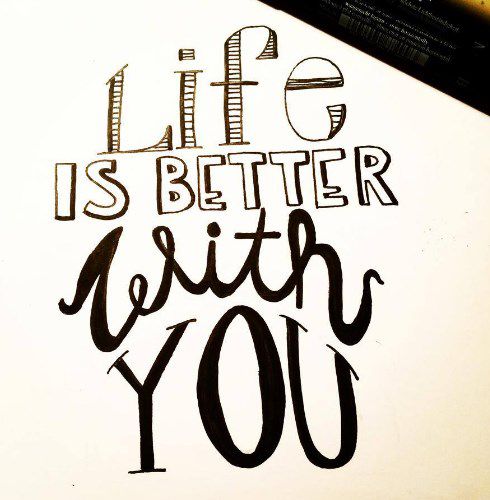 Life
IS BETTER
with
YOU